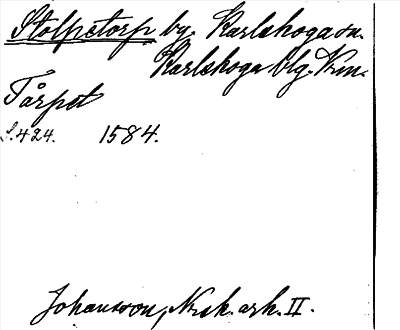 Stolpetorp by. Karlskoga sn.
Karlskoga blg. Vrm.
Tårpet
s. 424. 1584.
Johansson, Nzsk. ark. II.